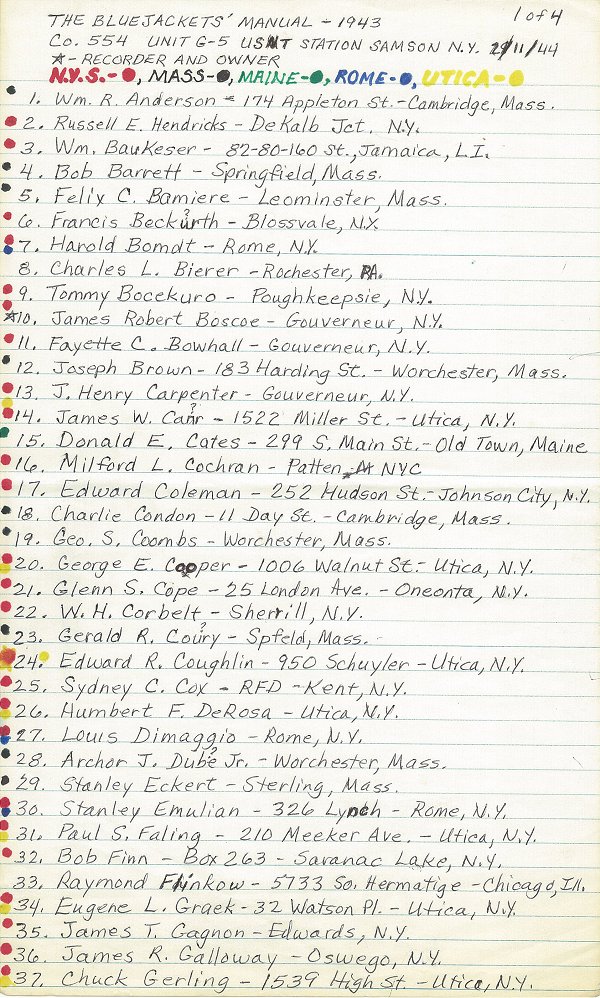 THE BLUEJACKETS' MANUAL - 1943 1 of 4
Co. 554 UNIT G-5 USNT STATION SAMSON N.Y. 29/11/44
☆ - RECORDER AND OWNER
N.Y.S. - ●, MASS - ●, MAINE - ●, ROME - ●, UTICA - ●
1. Wm. R. Anderson - 174 Appleton St. - Cambridge, Mass.
2. Russell E. Hendricks - DeKalb Jct. N.Y.
3. Wm. BauKeser - 82-80-160 St., Jamaica, L.I.
4. Bob Barrett - Springfield, Mass.
5. Felix C. Bamiere - Leominster, Mass.
6. Francis Beckurth - Blossvale, N.Y.
7. Harold Bomdt - Rome, N.Y.
8. Charles L. Bierer - Rochester, PA.
9. Tommy Bocekuro - Poughkeepsie, N.Y.
☆10. James Robert Boscoe - Gouverneur, N.Y.
11. Fayette C. Bowhall - Gouverneur, N.Y.
12. Joseph Brown - 183 Harding St. - Worchester, Mass.
13. J. Henry Carpenter - Gouverneur, N.Y.
14. James W. Carr? - 1522 Miller St. - Utica, N.Y.
15. Donald E. Cates - 299 S. Main St. - Old Town, Maine
16. Milford L. Cochran - Patten, NYC
17. Edward Coleman - 252 Hudson St. - Johnson City, N.Y.
18. Charlie Condon - 11 Day St. - Cambridge, Mass.
19. Geo. S. Coombs - Worchester, Mass.
20. George E. Cooper - 1006 Walnut St. - Utica, N.Y.
21. Glenn S. Cope - 25 London Ave. - Oneonta, N.Y.
22. W. H. Corbelt - Sherrill, N.Y.
23. Gerald R. Coury? - Spfeld, Mass.
24. Edward R. Coughlin - 950 Schuyler - Utica, N.Y.
25. Sydney C. Cox - RFD - Kent, N.Y.
26. Humbert F. DeRosa - Utica, N.Y.
27. Louis Dimaggio - Rome, N.Y.
28. Archor J. Dube? Jr. - Worchester, Mass.
29. Stanley Eckert - Sterling, Mass.
30. Stanley Emulian - 326 Lynch - Rome, N.Y.
31. Paul S. Faling - 210 Meeker Ave. - Utica, N.Y.
32. Bob Finn - Box 263 - Saranac Lake, N.Y.
33. Raymond Flinkow - 5733 So. Hermatige - Chicago, Ill.
34. Eugene L. Graek - 32 Watson Pl. - Utica, N.Y.
35. James T. Gagnon - Edwards, N.Y.
36. James R. Galloway - Oswego, N.Y.
37. Chuck Gerling - 1539 High St. - Utica, N.Y.